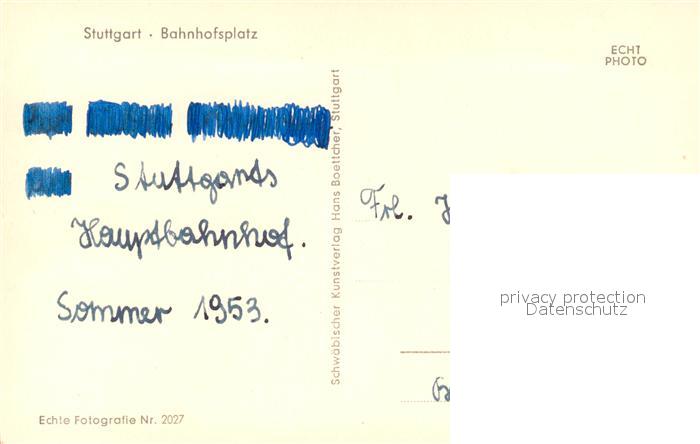 Stuttgart · Bahnhofsplatz
ECHT
PHOTO
Stuttgarts
Hauptbahnhof.
Sommer 1953.
Echte Fotografie Nr. 2027
Schwäbischer Kunstverlag Hans Boettcher, Stuttgart
Frl.
privacy protection
Datenschutz